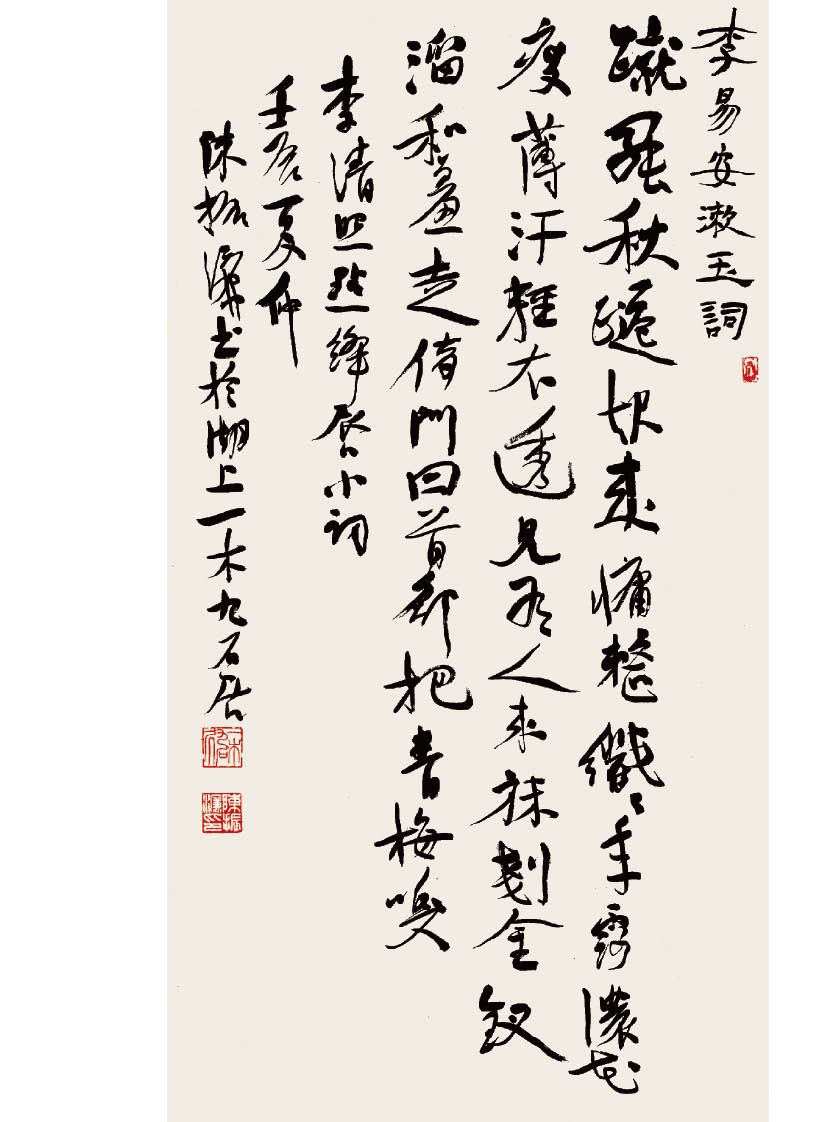 李易安漱玉詞
蹴罷秋韆起來慵整纖〻手露濃花
瘦薄汗輕衣透見有人來袜剗金釵
溜和羞走倚門回首卻把青梅嗅
李清照點絳唇小詞
壬辰夏仲
陳振濂書於湖上一木九石居
陳振濂印